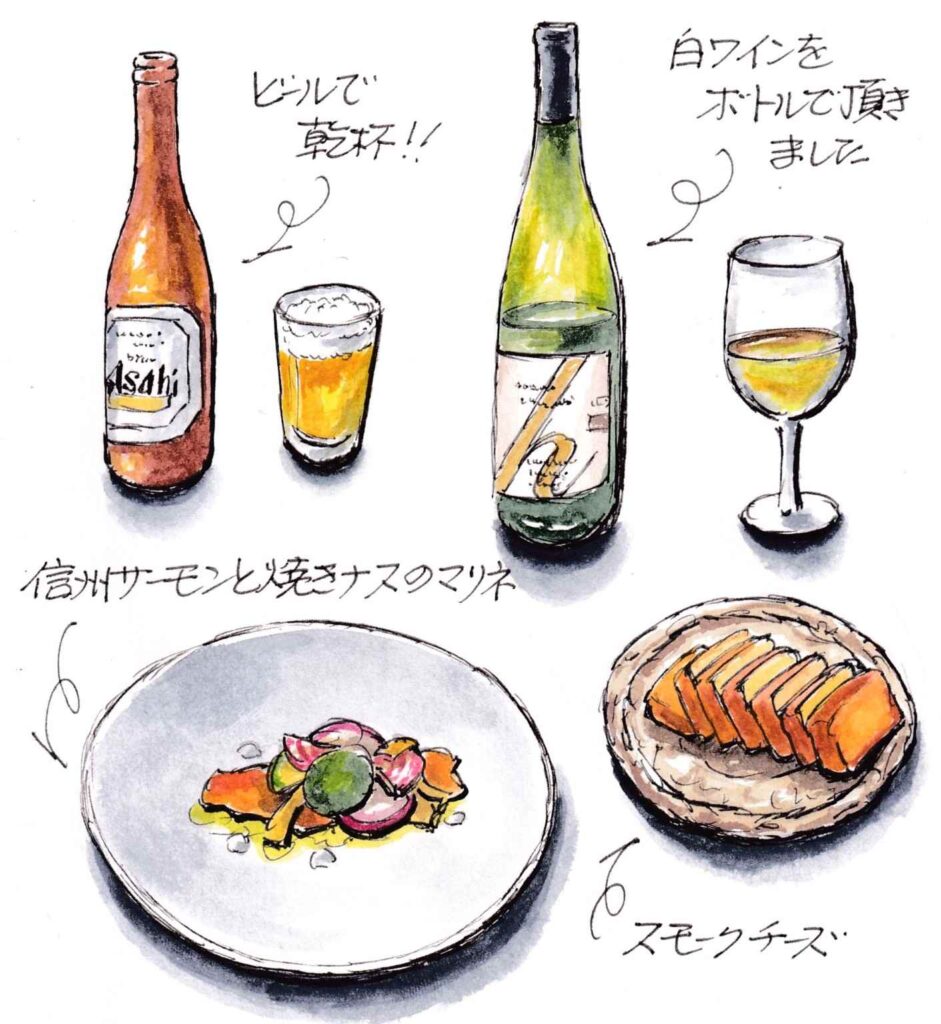 ビールで
乾杯!!
白ワインを
ボトルで頂き
ました
Asahi
h
信州サーモンと焼きナスのマリネ
スモークチーズ